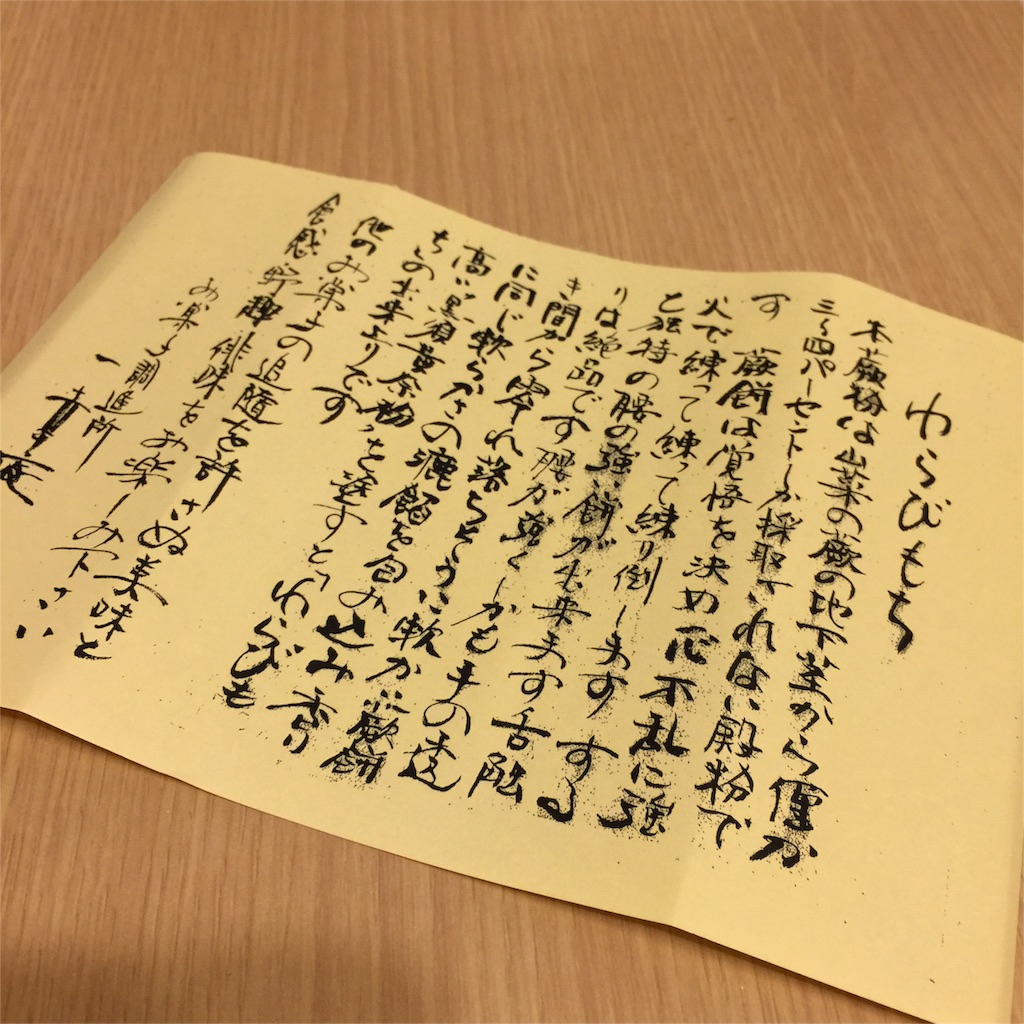 わらびもち
本蕨粉は山菜の蕨の地下茎から僅か
三〜四パーセントしか採取されない殿粉で
す 蕨餅は覚悟を決め一心不乱に強
火で練って練って練り倒します する
と独特の腰の強い餅が出来ます 舌触
りは絶品です 腰が強くしかも手の透
き間から零れ落ちそうに軟かい蕨餅
に同じ軟らかさの漉餡を包み込み香り
高い黒須黄奈粉を塗すとわらびも
ちの出来上りです
他のお菓子の追随を許さぬ美味と
食感 野趣 俳味をお楽しみ下さい
お菓子調進所
一幸庵